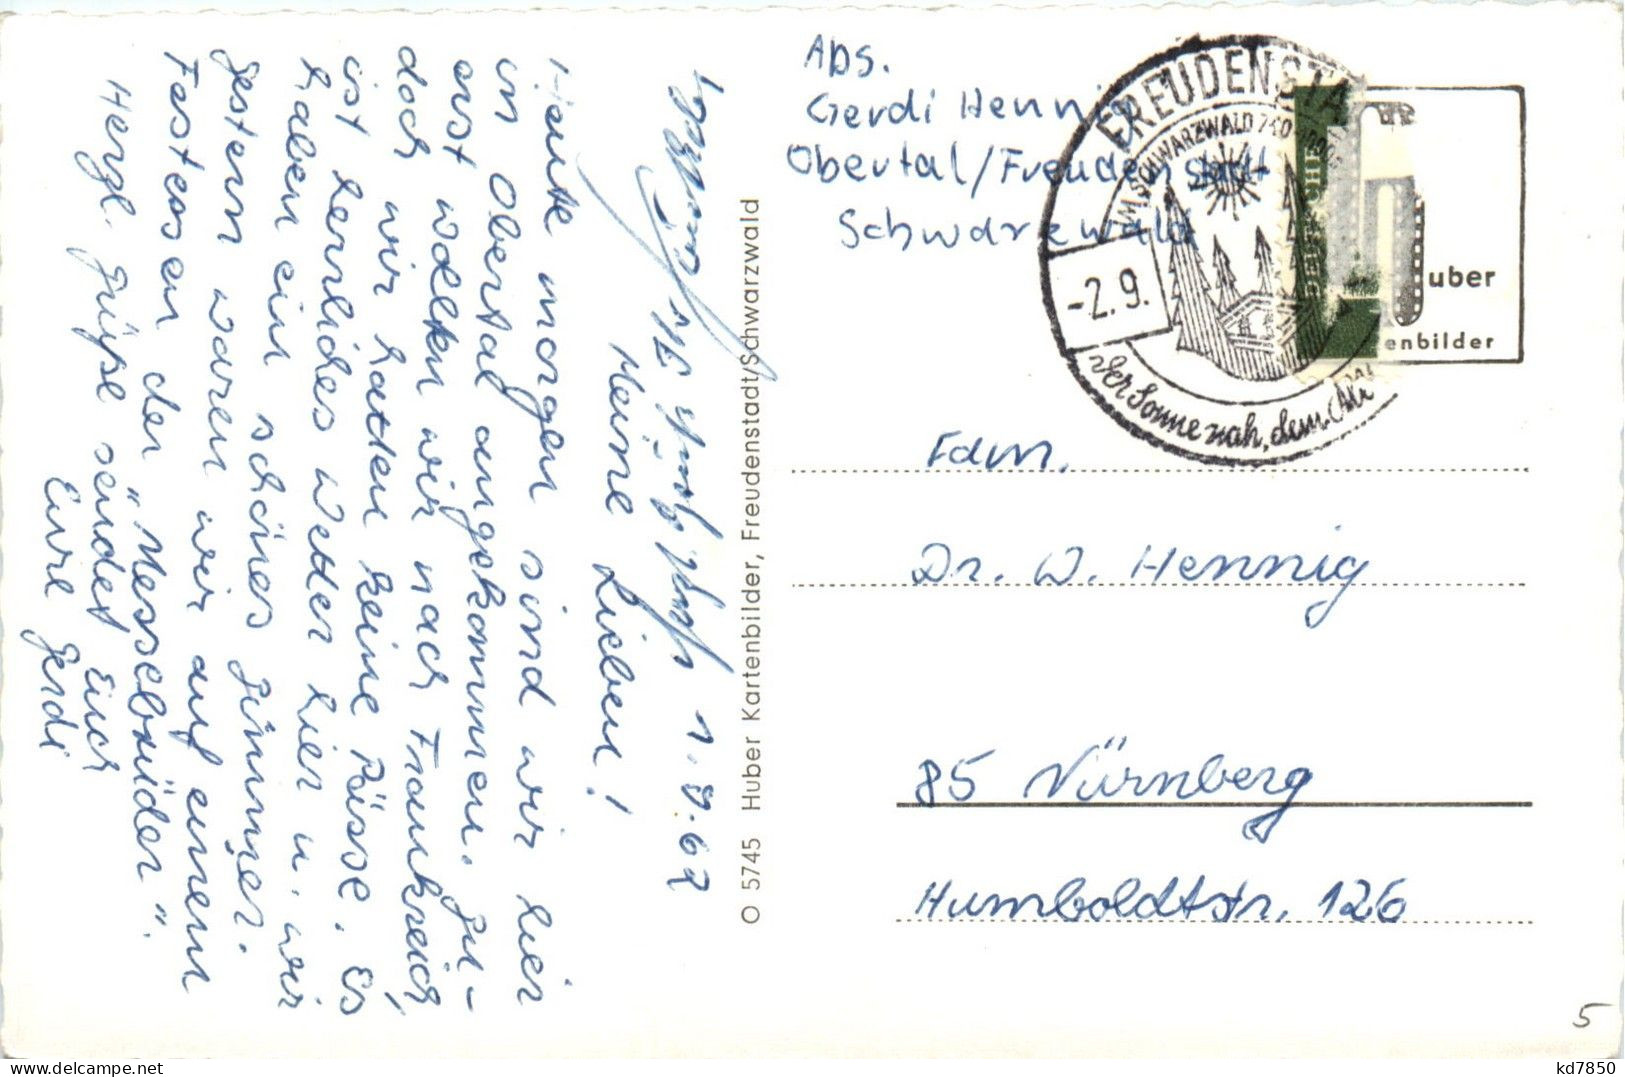 1.9.67
Meine Lieben!
Heute morgen sind wir hier
in Obertal angekommen. Zu-
erst wollten wir nach Frankreich,
doch wir hatten keine Pässe. Es
ist herrliches Wetter hier u. wir
haben ein schönes Zimmer.
Gestern waren wir auf einem
Festessen der "Messebrüder".
Herzl. Grüße sendet Euch
Eure Gerdi
O 5745 Huber Kartenbilder, Freudenstadt/Schwarzwald
Abs.
Gerdi Hennig
Obertal/Freudenstadt
Schwarzwald
FREUDENSTA
IM SCHWARZWALD 740
-2.9.
Der Sonne nah, dem
DEUTSCHE
uber
enbilder
Fam.
Dr. W. Hennig
85 Nürnberg
Humboldtstr. 126
5
kd7850